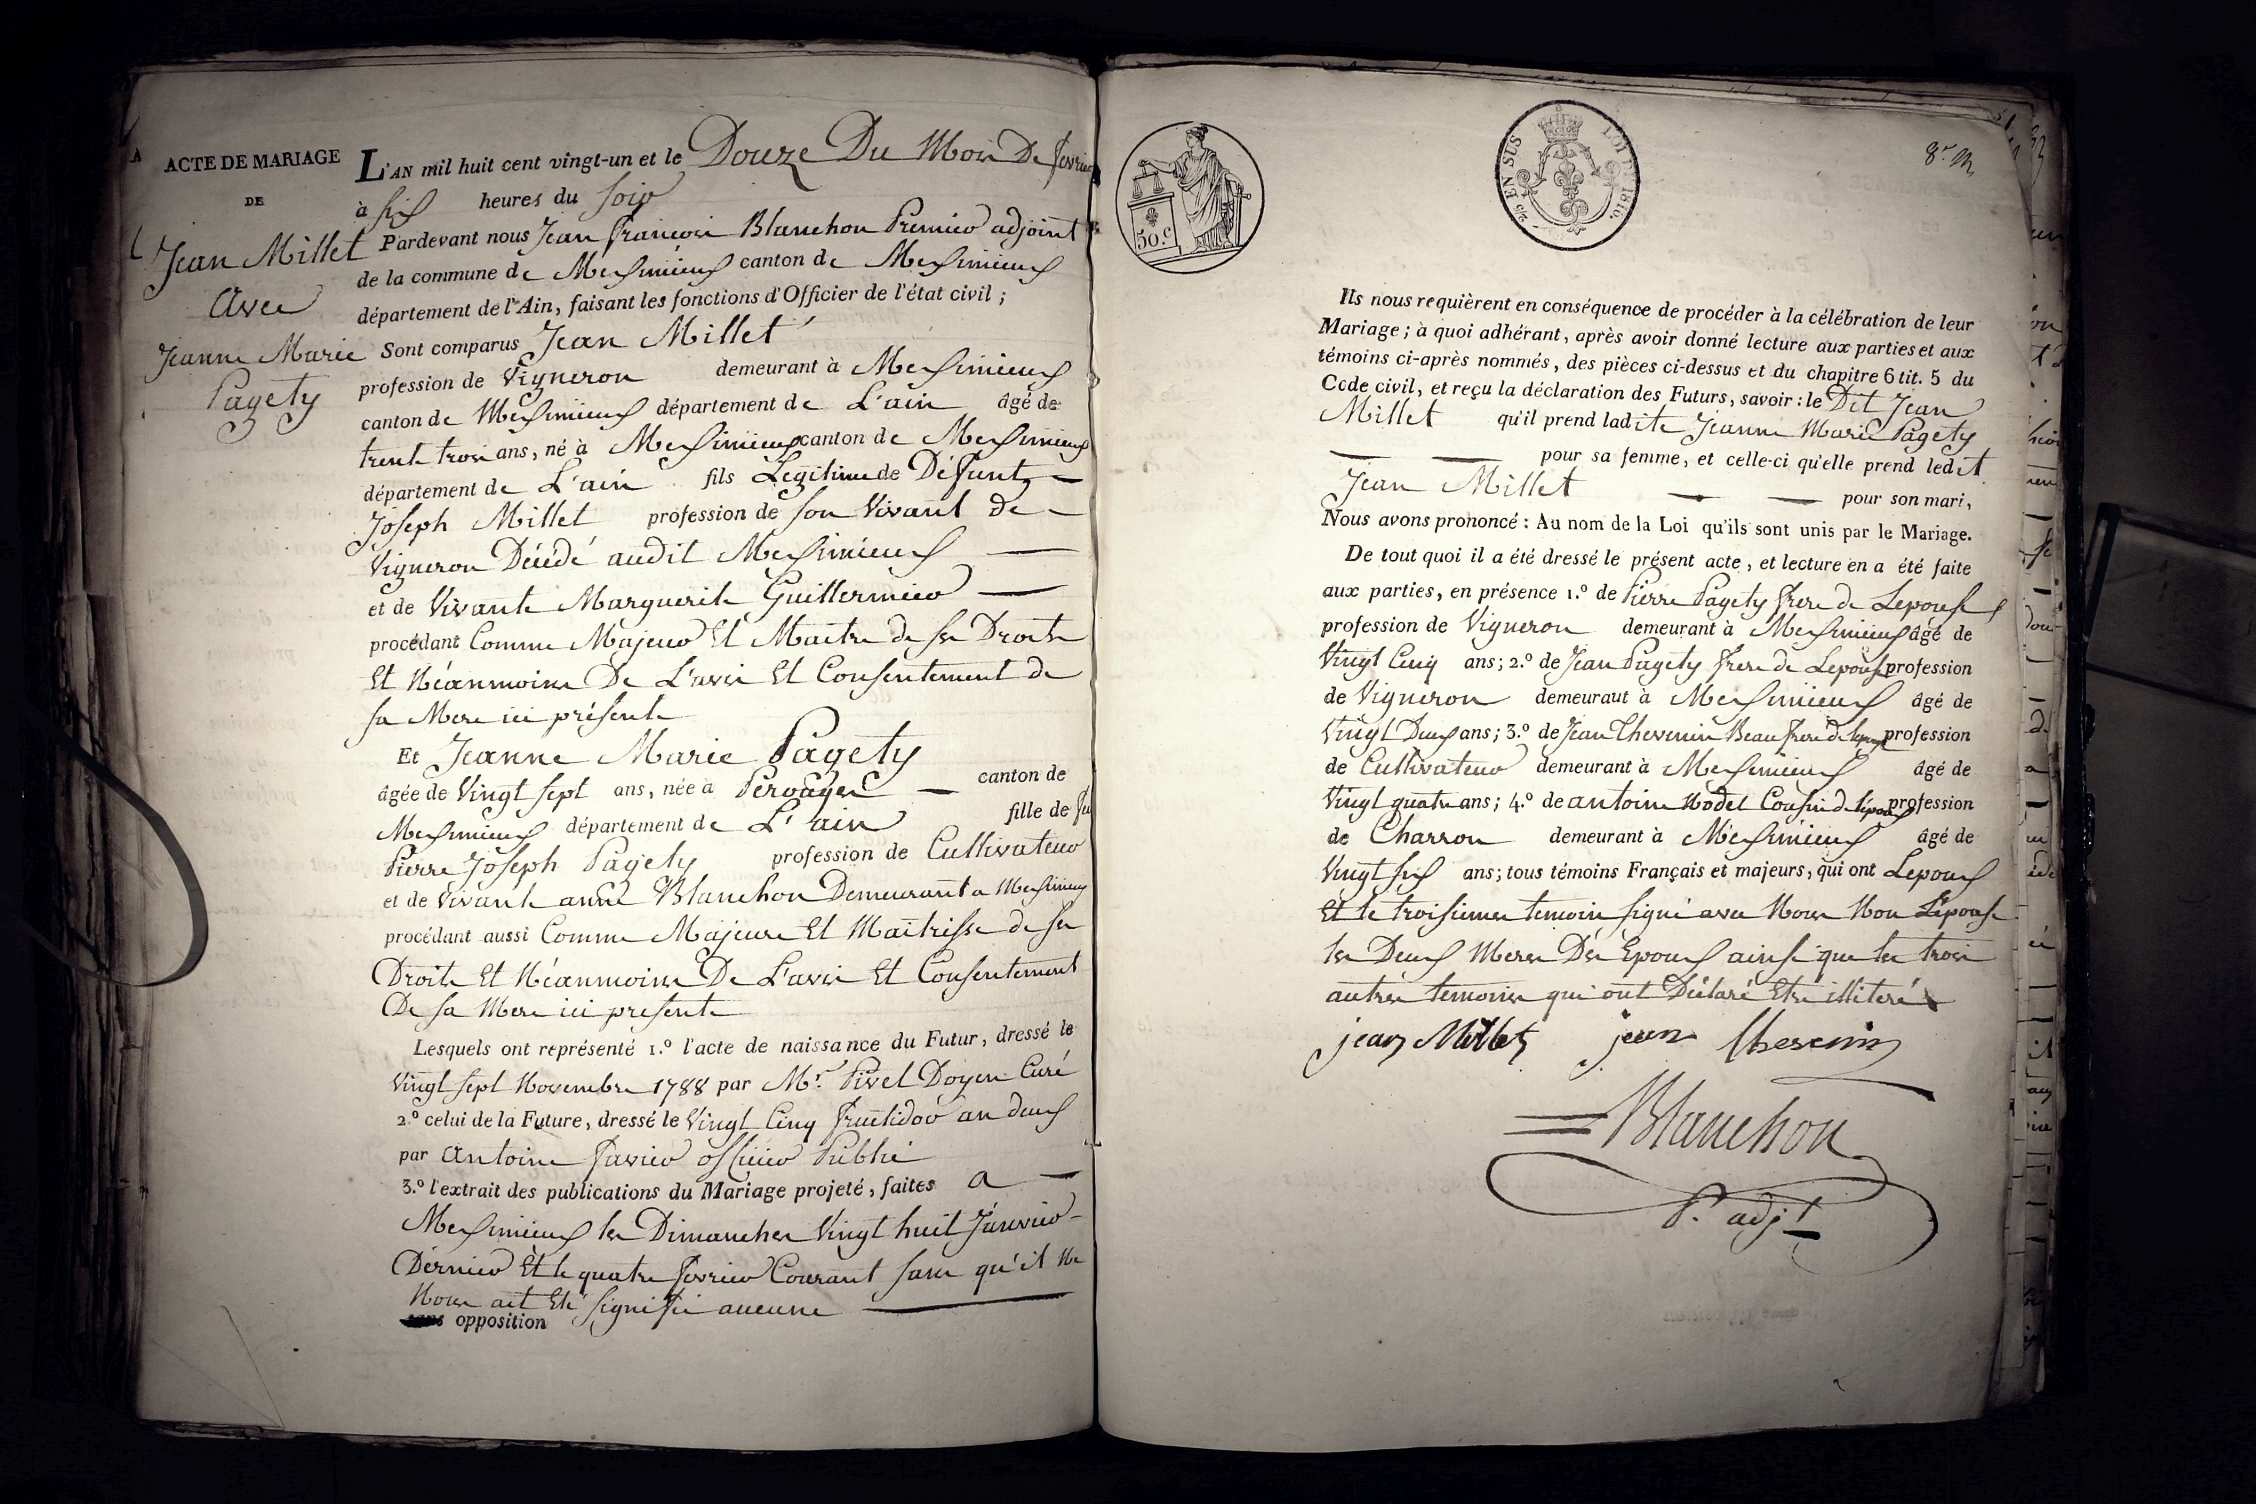 ACTE DE MARIAGE
DE
Jean Millet
Avec
Jeanne Marie
Pagety
L'AN mil huit cent vingt-un et le Douze Du Mois De fevrier
à six heures du soir
Pardevant nous Jean françois Blanchon Premier adjoint
de la commune de Meximieux canton de Meximieux
département de l'Ain, faisant les fonctions d'Officier de l'état civil ;
Sont comparus Jean Millet
profession de Vigneron demeurant à Meximieux
canton de Meximieux département de L'ain âgé de
trente trois ans, né à Meximieux canton de Meximieux
département de L'ain fils Légitime de Défunt
Joseph Millet profession de son Vivant de
Vigneron Décédé audit Meximieux
et de Vivante Marguerite Guillermier
procédant Comme Majeur Et Maitre de ses Droits
Et Néanmoins De L'avis Et Consentement de
sa Mere ici présente
Et Jeanne Marie Pagety
âgée de Vingt sept ans, née à Perouges canton de
Meximieux département de L'ain fille de fu
Pierre Joseph Pagety profession de Cultivateur
et de Vivante anne Blanchon Demeurant a Meximieux
procédant aussi Comme Majeure Et Maitrisse de ses
Droits Et Néanmoins De L'avis Et Consentement
De sa Mere ici presente
Lesquels ont représenté 1.º l'acte de naissance du Futur, dressé le
Vingt sept Novembre 1788 par Mr. Pivet Doyen Curé
2.º celui de la Future, dressé le Vingt Cinq fructidor an deux
par Antoine Favier officier Public
3.º l'extrait des publications du Mariage projeté, faites a
Meximieux les Dimanches Vingt huit Janvier
Dernier Et le quatre fevrier Courant sans qu'il Ne
Nous ait Eté signifié aucune
opposition
50.c
2/5 EN SUS
LOI DE 1816.
8e M
Ils nous requièrent en conséquence de procéder à la célébration de leur
Mariage ; à quoi adhérant, après avoir donné lecture aux parties et aux
témoins ci-après nommés, des pièces ci-dessus et du chapitre 6 tit. 5 du
Code civil, et reçu la déclaration des Futurs, savoir : le Dit Jean
Millet qu'il prend ladite Jeanne Marie Pagety
pour sa femme, et celle-ci qu'elle prend ledit
Jean Millet pour son mari,
Nous avons prononcé : Au nom de la Loi qu'ils sont unis par le Mariage.
De tout quoi il a été dressé le présent acte, et lecture en a été faite
aux parties, en présence 1.º de Pierre Pagety frere de Lepouse
profession de Vigneron demeurant à Meximieux âgé de
Vingt Cinq ans ; 2.º de Jean Pagety frere de Lepouse profession
de Vigneron demeuraut à Meximieux âgé de
Vingt Deux ans ; 3.º de Jean Thevenin Beau frere de lepoux profession
de Cultivateur demeurant à Meximieux âgé de
Vingt quatre ans ; 4.º de antoine Nodet Cousin de lépoux profession
de Charron demeurant à Meximieux âgé de
Vingt six ans ; tous témoins Français et majeurs, qui ont Lepoux
Et le troisieme temoin signé avec Nous Non Lépouse
les Deux Meres Des Epoux ainsi que les trois
autres temoins qui ont Déclaré Etre illiteré
jean Millet jean thevenin
Blanchon
P. adjt